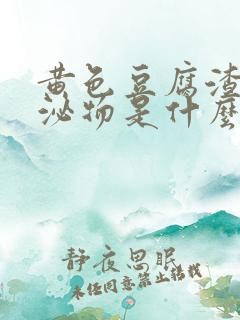 黄色豆腐渣
泌物是什么
静夜思眠
未经同意禁止转载